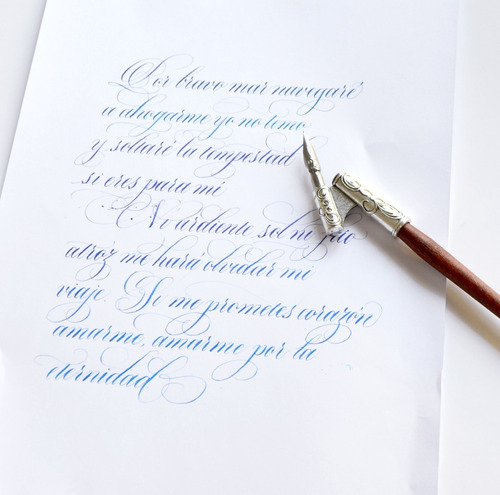 Por bravo mar navegaré
a ahogarme yo no temo
y soltaré la tempestad
si eres para mi
Ni ardiente sol ni frío
atroz me hará olvidar mi
viaje. Si me prometes corazón
amarme, amarme por la
eternidad